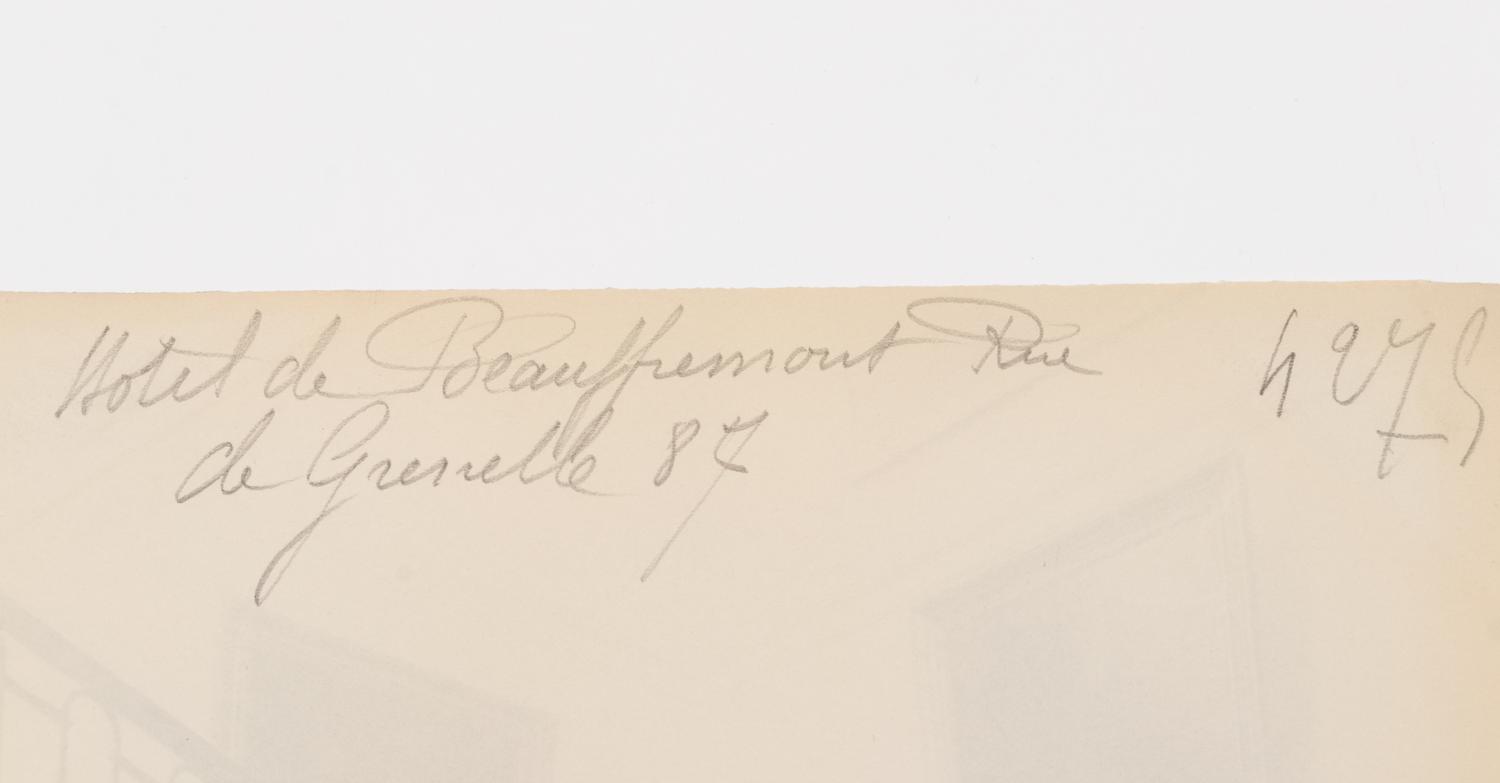 Hotel de Beauffremont Rue 4275
de Grenelle 87